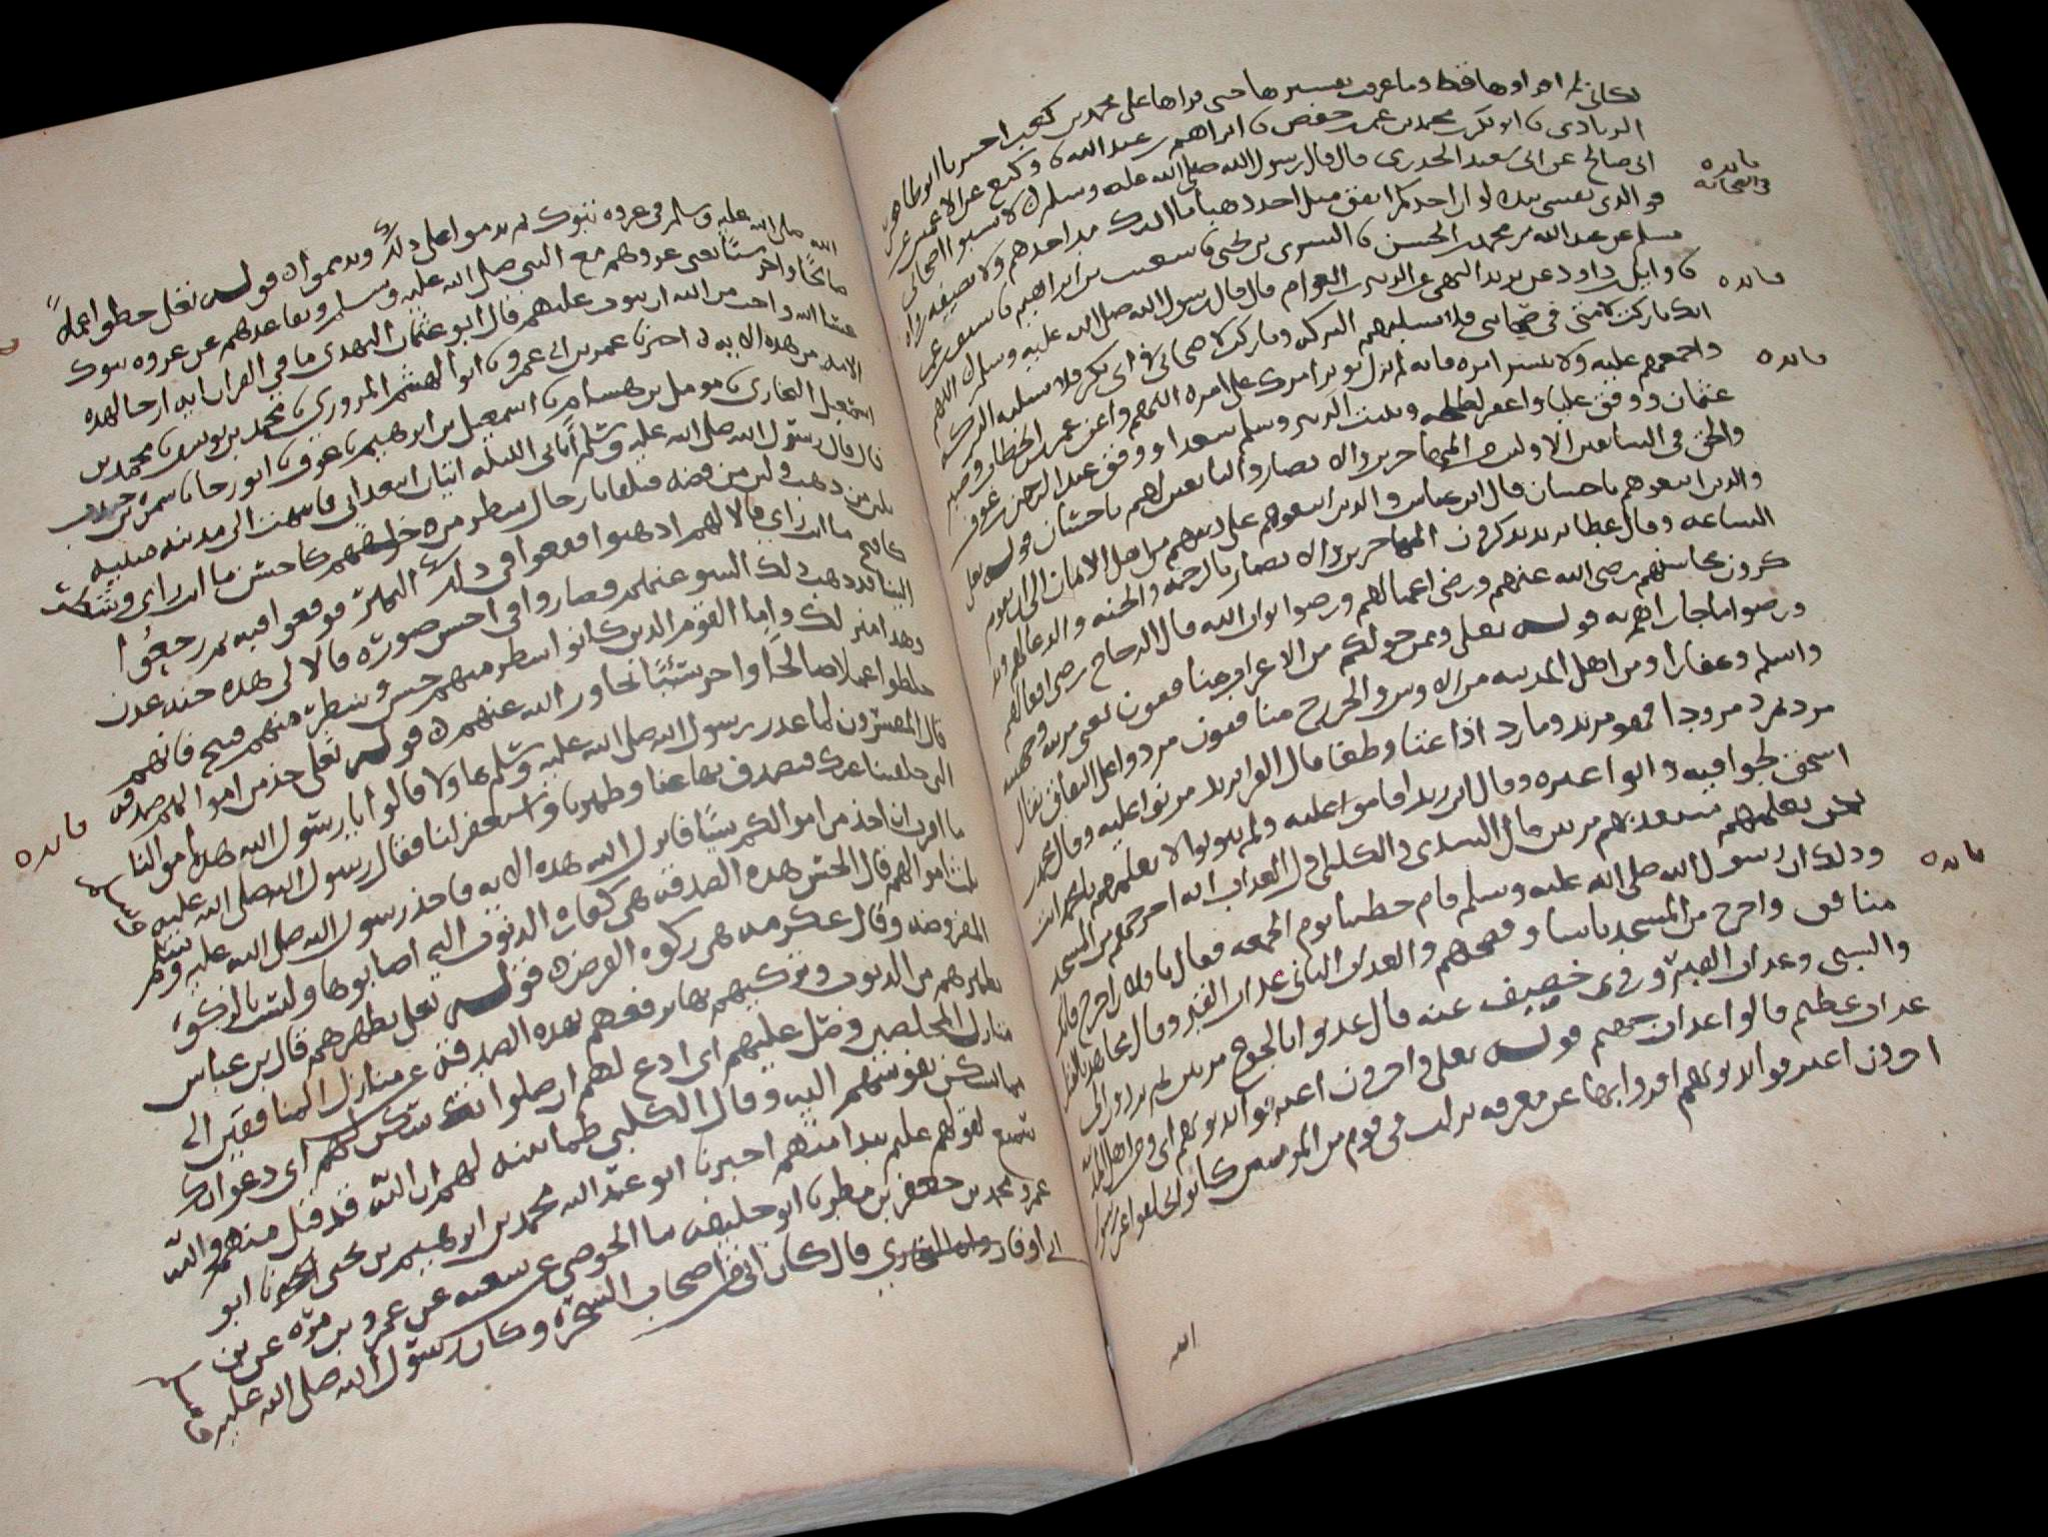 لكاني لم اقراوها قط وما عرفت تفسيرها حتى قراها على محمد بن كعب اخبرنا ابو طاهر
الزيادي ابو بكر محمد بن عمر بن حفص ابراهيم بن عبد الله وكيع عن الاعمش عن
ابى صالح عن ابى سعيد الخدرى قال قال رسول الله صلى الله عليه وسلم لا تسبوا اصحابي
فو الذى نفسى بيده لو ان احدكم انفق مثل احد ذهبا ما ادرك مد احدهم ولا نصيفه رواه
مسلم عن عبد الله بن محمد بن الحسن السرى بن يحيى شعيب بن ابراهيم سيف بن عمر
وايل بن داود عن يزيد البهى عن الزبير بن العوام قال قال رسول الله صلى الله عليه وسلم اللهم
انك باركت لامتى في صحابتى فلا تسلبهم البركه وباركت لاصحابي في ابى بكر فلا تسلبه البركه
واجمعهم عليه ولا تنشر امره فانه لم يزل يوثر امرك على امره اللهم واعن عمر بن الخطاب وصبر
عثمان ووفق عليا واغفر لطلحه وثبت الزبير وسلم سعدا ووفق عبد الرحمن بن عوف
والحق بى السابقين الاولين من المهاجرين والانصار والتابعين لهم باحسان قوله تعلى
والذين اتبعوهم باحسان قال ابن عباس والذين اتبعوهم على دينهم من اهل الايمان الى ان تقوم
الساعه وقال عطا يريد يذكرون المهاجرين والانصار بالرحمه والجنه والدعا لهم ويذ
كرون محاسنهم رضى الله عنهم ورضى اعمالهم ورضوا ثواب الله قال الزجاج رضى افعالهم
ورضوا ما جازاهم به قوله تعلى وممن حولكم من الاعراب منافقون يعنى مزينه وجهينه
واسلم وغفارا ومن اهل المدينه من الاوس والخزرج منافقون مردوا على النفاق يقال
مرد يمرد مرودا فهو مريد ومارد اذا عتا وطغا قال الفرا يريد مرنوا عليه وقال محمد
اسحق لجوا فيه وابوا غيره وقال ابن زيد اقاموا عليه ولم يتوبوا لا تعلمهم يا محمد انت
نحن نعلمهم سنعذبهم مرتين قال السدى والكلبى اول العذاب انه اخرجهم من المسجد
وذلك ان رسول الله صلى الله عليه وسلم قام خطيبا يوم الجمعه فقال يا فلان اخرج فانك
منافق واخرج من المسجد ناسا وفضحهم والعذاب الثانى عذاب القبر وقال مجاهد بالقتل
والسبى وعذاب القبر وروى خصيف عنه قال عذبوا بالجوع مرتين ثم يردون الى
عذاب عظيم قالوا عذاب جهنم قوله تعلى واخرون اعترفوا بذنوبهم اى ومن اهل المدينه
اخرون اعترفوا بذنوبهم اقروا بها عن معرفه نزلت فى قوم من المومنين كانوا تخلفوا عن رسول
الله
فايده
في الصحابه
فايده
فايده
فايده
الله صلى الله عليه وسلم فى غزوه تبوك ثم ندموا على ذلك وتذمموا قوله تعلى خلطوا عملا
صالحا واخر سيئا يعنى غزوهم مع النبى صلى الله عليه وسلم وتقاعدهم عن غزوه تبوك
عسا الله واجب من الله ان يتوب عليهم قال ابو عثمان النهدى ما في القران ايه ارجا لهذه
الامه من هذه الايه اخبرنا عمر بن ابى عمرو ابو الهيثم المروزى محمد بن يوسف محمد بن
اسمعيل البخارى مومل بن هشام اسمعيل بن ابرهيم عوف ابو رجا سمره بن جندب
قال قال رسول الله صلى الله عليه وسلم اتانى الليله اتيان ابتعثانى فانتهت الى مدينه مبنيه
بلبن من ذهب ولبن من فضه فتلقانا رجال شطر من خلقهم كاحسن ما انت راى وشطر
كاقبح ما انت راى قالا لهم اذهبوا فقعوا في ذلك النهر فوقعوا فيه ثم رجعوا
الينا قد ذهب ذلك السو عنهم فصاروا في احسن صوره قالا لى هذه جنه عدن
وهذا منزلك واما القوم الذين كانوا شطر منهم حسن وشطر منهم قبيح فانهم
خلطوا عملا صالحا واخر سيئا تجاوز الله عنهم قوله تعلى خذ من اموالهم صدقه
قال المفسرون لما عذر رسول الله صلى الله عليه وسلم هاولا قالوا يا رسول الله هذه اموالنا
التى خلفتنا عنك فتصدق بها عنا وطهرنا واستغفر لنا فقال رسول الله صلى الله عليه
ما امرت ان اخذ من اموالكم شيئا فانزل الله هذه الايه فاخذ رسول الله صلى الله عليه وسلم
ثلث اموالهم قال الحسن هذه الصدقه هى كفاره الذنوب التى اصابوها وليست بالزكوه
المفروضه وقال عكرمه هى زكوه الفرض قوله تعلى تطهرهم قال بن عباس
تطهرهم من الذنوب وتزكيهم بها ترفعهم بهذه الصدقه عن منازل المنافقين الى
منازل المخلصين وصل عليهم اى ادع لهم ان صلواتك سكن لهم اى دعواتك
مما تسكن نفوسهم اليه وقال الكلبى طمانينه لهم ان الله قد قبل منهم والله
سميع لقولهم عليم بندامتهم اخبرنا ابو عبد الله محمد بن ابرهيم بن يحيى ابو
عمرو محمد بن جعفر بن مطر ابو خليفه الحوضى عن شعبه عن عمرو بن مره عن بن
ابى اوفا قال كان من اصحاب الشجره وكان رسول الله صلى الله عليه
فايده